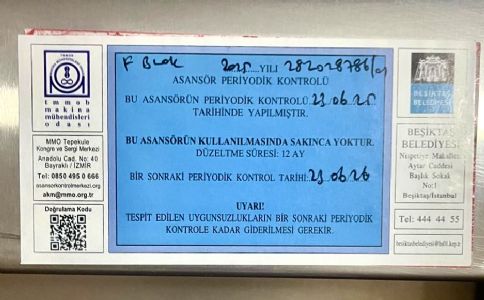 TMMOB
MAKİNA MÜHENDİSLERİ ODASI
tmmob
makina
mühendisleri
odası
MMO Tepekule
Kongre ve Sergi Merkezi
Anadolu Cad. No: 40
Bayraklı / İZMİR
Tel: 0850 495 0 666
asansorkontrolmerkezi.org
akm@mmo.org.tr
Doğrulama Kodu
F Blok 2025.....YILI 282028786/01
ASANSÖR PERİYODİK KONTROLÜ
BU ASANSÖRÜN PERİYODİK KONTROLÜ 23.06.25
TARİHİNDE YAPILMIŞTIR.
BU ASANSÖRÜN KULLANILMASINDA SAKINCA YOKTUR.
DÜZELTME SÜRESİ: 12 AY
BİR SONRAKİ PERİYODİK KONTROL TARİHİ: 23.06.26
UYARI!
TESPİT EDİLEN UYGUNSUZLUKLARIN BİR SONRAKİ PERİYODİK
KONTROLE KADAR GİDERİLMESİ GEREKİR.
BEŞİKTAŞ
BELEDİYESİ
BEŞİKTAŞ
BELEDİYESİ
Nispetiye Mahallesi
Aytar Caddesi
Başlık Sokak
No:1
Beşiktaş/İstanbul
Tel: 444 44 55
besiktasbelediyesi@hs01.kep.tr